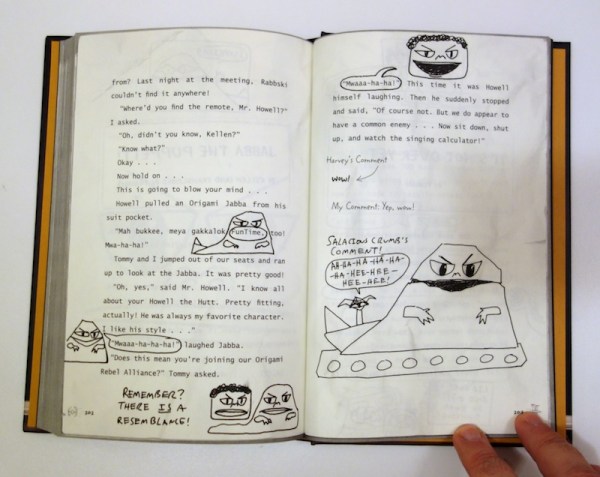 from? Last night at the meeting, Rabbski
couldn't find it anywhere!
"Where'd you find the remote, Mr. Howell?"
I asked.
"Oh, didn't you know, Kellen?"
"Know what?"
Okay . . .
Now hold on . . .
This is going to blow your mind . . .
Howell pulled an Origami Jabba from his
suit pocket.
"Mah bukkee, meya gakkalok FunTime, too!
Mwa-ha-ha!"
Tommy and I jumped out of our seats and ran
up to look at the Jabba. It was pretty good!
"Oh, yes," said Mr. Howell. "I know all
about your Howell the Hutt. Pretty fitting,
actually! He was always my favorite character.
I like his style . . ."
"Mwaaa-ha-ha-ha!" laughed Jabba.
"Does this mean you're joining our Origami
Rebel Alliance?" Tommy asked.
REMEMBER?
THERE IS A
RESEMBLANCE!
"Mwaaa-ha-ha!" This time it was Howell
himself laughing. Then he suddenly stopped
and said, "Of course not. But we do appear to
have a common enemy . . . Now sit down, shut
up, and watch the singing calculator!"
Harvey's Comment
wow!
My Comment: Yep, wow!
SALACIOUS CRUMB'S
COMMENT!
AH-HA-HA-HA-HA-
HA-HEE-HEE-
HEE-HEE!